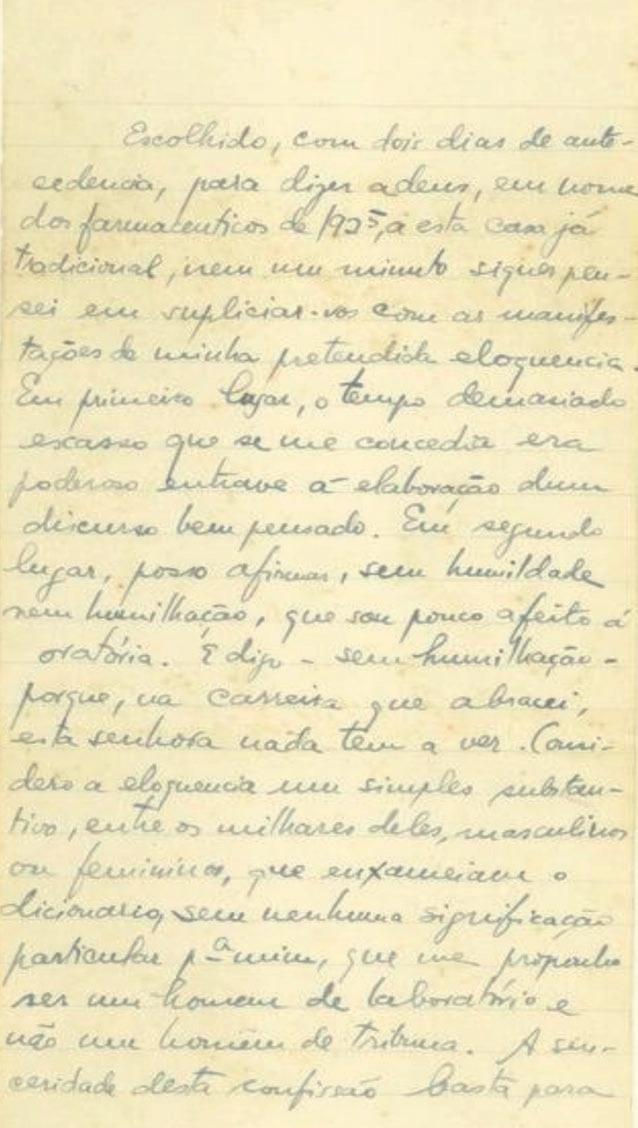 Escolhido, com dois dias de ante-
cedencia, para dizer adeus, em nome
dos farmaceuticos de 1925, a esta casa já
tradicional, nem um minuto siquer pen-
sei em supliciar-vos com as manifes-
tações de minha pretendida eloquencia.
Em primeiro lugar, o tempo demasiado
escasso que se me concedia era
poderoso entrave á elaboração dum
discurso bem pensado. Em segundo
lugar, posso afirmar, sem humildade
nem humilhação, que sou pouco afeito á
oratória. E digo - sem humilhação -
porque, na carreira que abracei,
esta senhora nada tem a ver. Consi-
dero a eloquencia um simples substan-
tivo, entre os milhares deles, masculinos
ou femininos, que enxameiam o
dicionario, sem nenhuma significação
particular pª mim, que me proponho
ser um homem de laboratório e
não um homem de tribuna. A sen-
ceridade desta confissão basta para